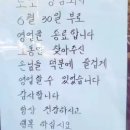 6월 30일 부로
영업을 종료 합니다
노동안 찾아주신
손님들 덕분에 즐겁게
영업할수 있었습니다
감사합니다
항상 건강하시고
행복 하십시요